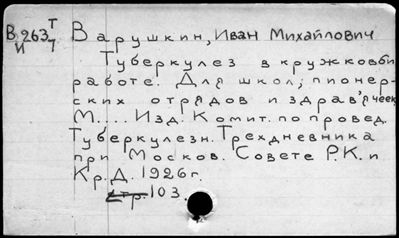 В 263 Т/7
И
Варушкин, Иван Михайлович
Туберкулез в кружковой
работе. Для школ, пионер-
ских отрядов и здрав'ячеек
М.... Изд. Комит. по провед.
Туберкулезн. Трехдневника
при Москов. Совете Р.К. и
Кр. Д. 1926 г.
стр. 103.